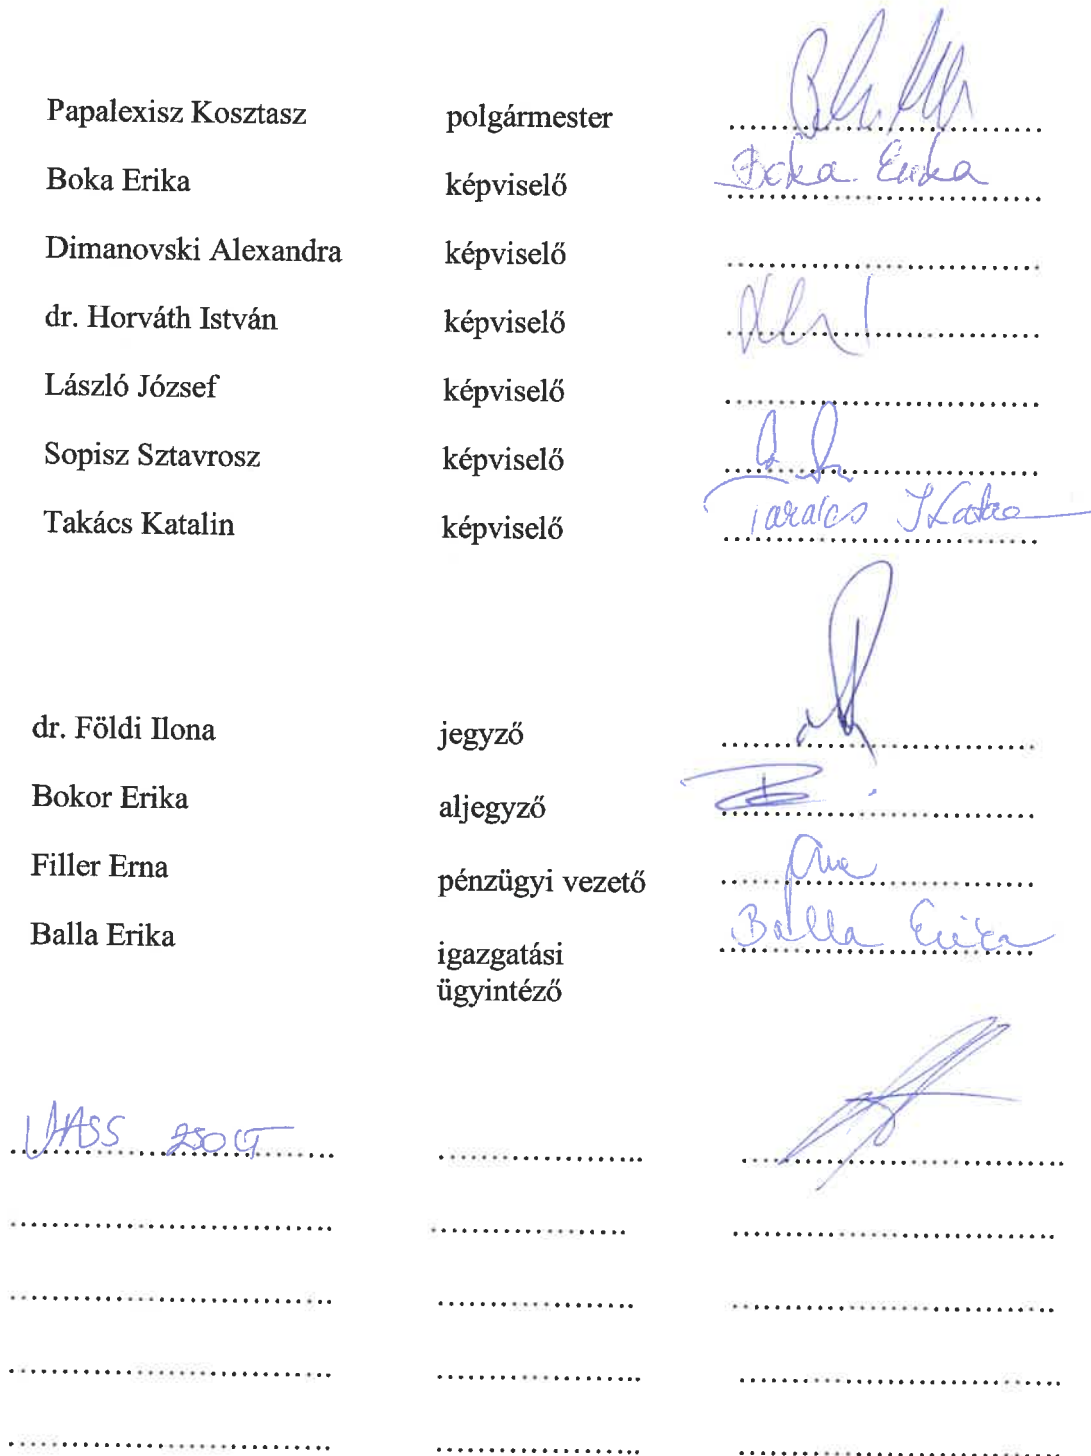 Papalexisz Kosztasz polgármester
Boka Erika képviselő Boka Erika
Dimanovski Alexandra képviselő
dr. Horváth István képviselő
László József képviselő
Sopisz Sztavrosz képviselő
Takács Katalin képviselő Takács
dr. Földi Ilona jegyző
Bokor Erika aljegyző
Filler Erna pénzügyi vezető
Balla Erika igazgatási Balla Erika
ügyintéző
VASS ZSOLT